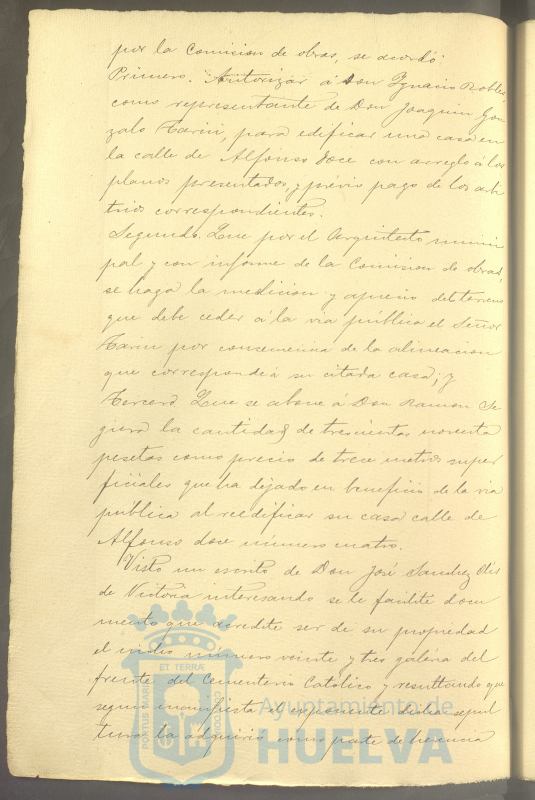 por la Comision de obras, se acordó
Primero. Autorizar á Don Ygnacio Robles,
como representante de Don Joaquin Gon
zalo Tarin, para edificar una casa en
la calle de Alfonso doce con arreglo á los
planos presentados, y prévio pago de los arbi
trios correspondientes.
Segundo. Que por el Arquitecto munici
pal y con informe de la Comision de obras,
se haga la medicion y aprecio del terreno
que debe ceder á la via pública el Señor
Tarin por consecuencia de la alineacion
que corresponde á su citada casa; y
Tercero Que se abone á Don Ramon Se
la cantidad de trescientas noventa
pesetas como precio de trece metros super
ficiales que ha dejado en beneficio de la via
publica al reedificar su casa calle de
Alfonso doce número cuatro.
Visto un escrito de Don José Sanchez
de Victoria interesando se le facilite docu
mento que acredite ser de su propiedad
el nicho número veinte y tres galéria del
frente del Cementerio Católico y resultando que
segun manifiesta el esponente dicha sepul
tura la adquirió como parte de herencia
ET TERRÆ
PORTUS MARIS
CUSTODIA
Ayuntamiento de
HUELVA